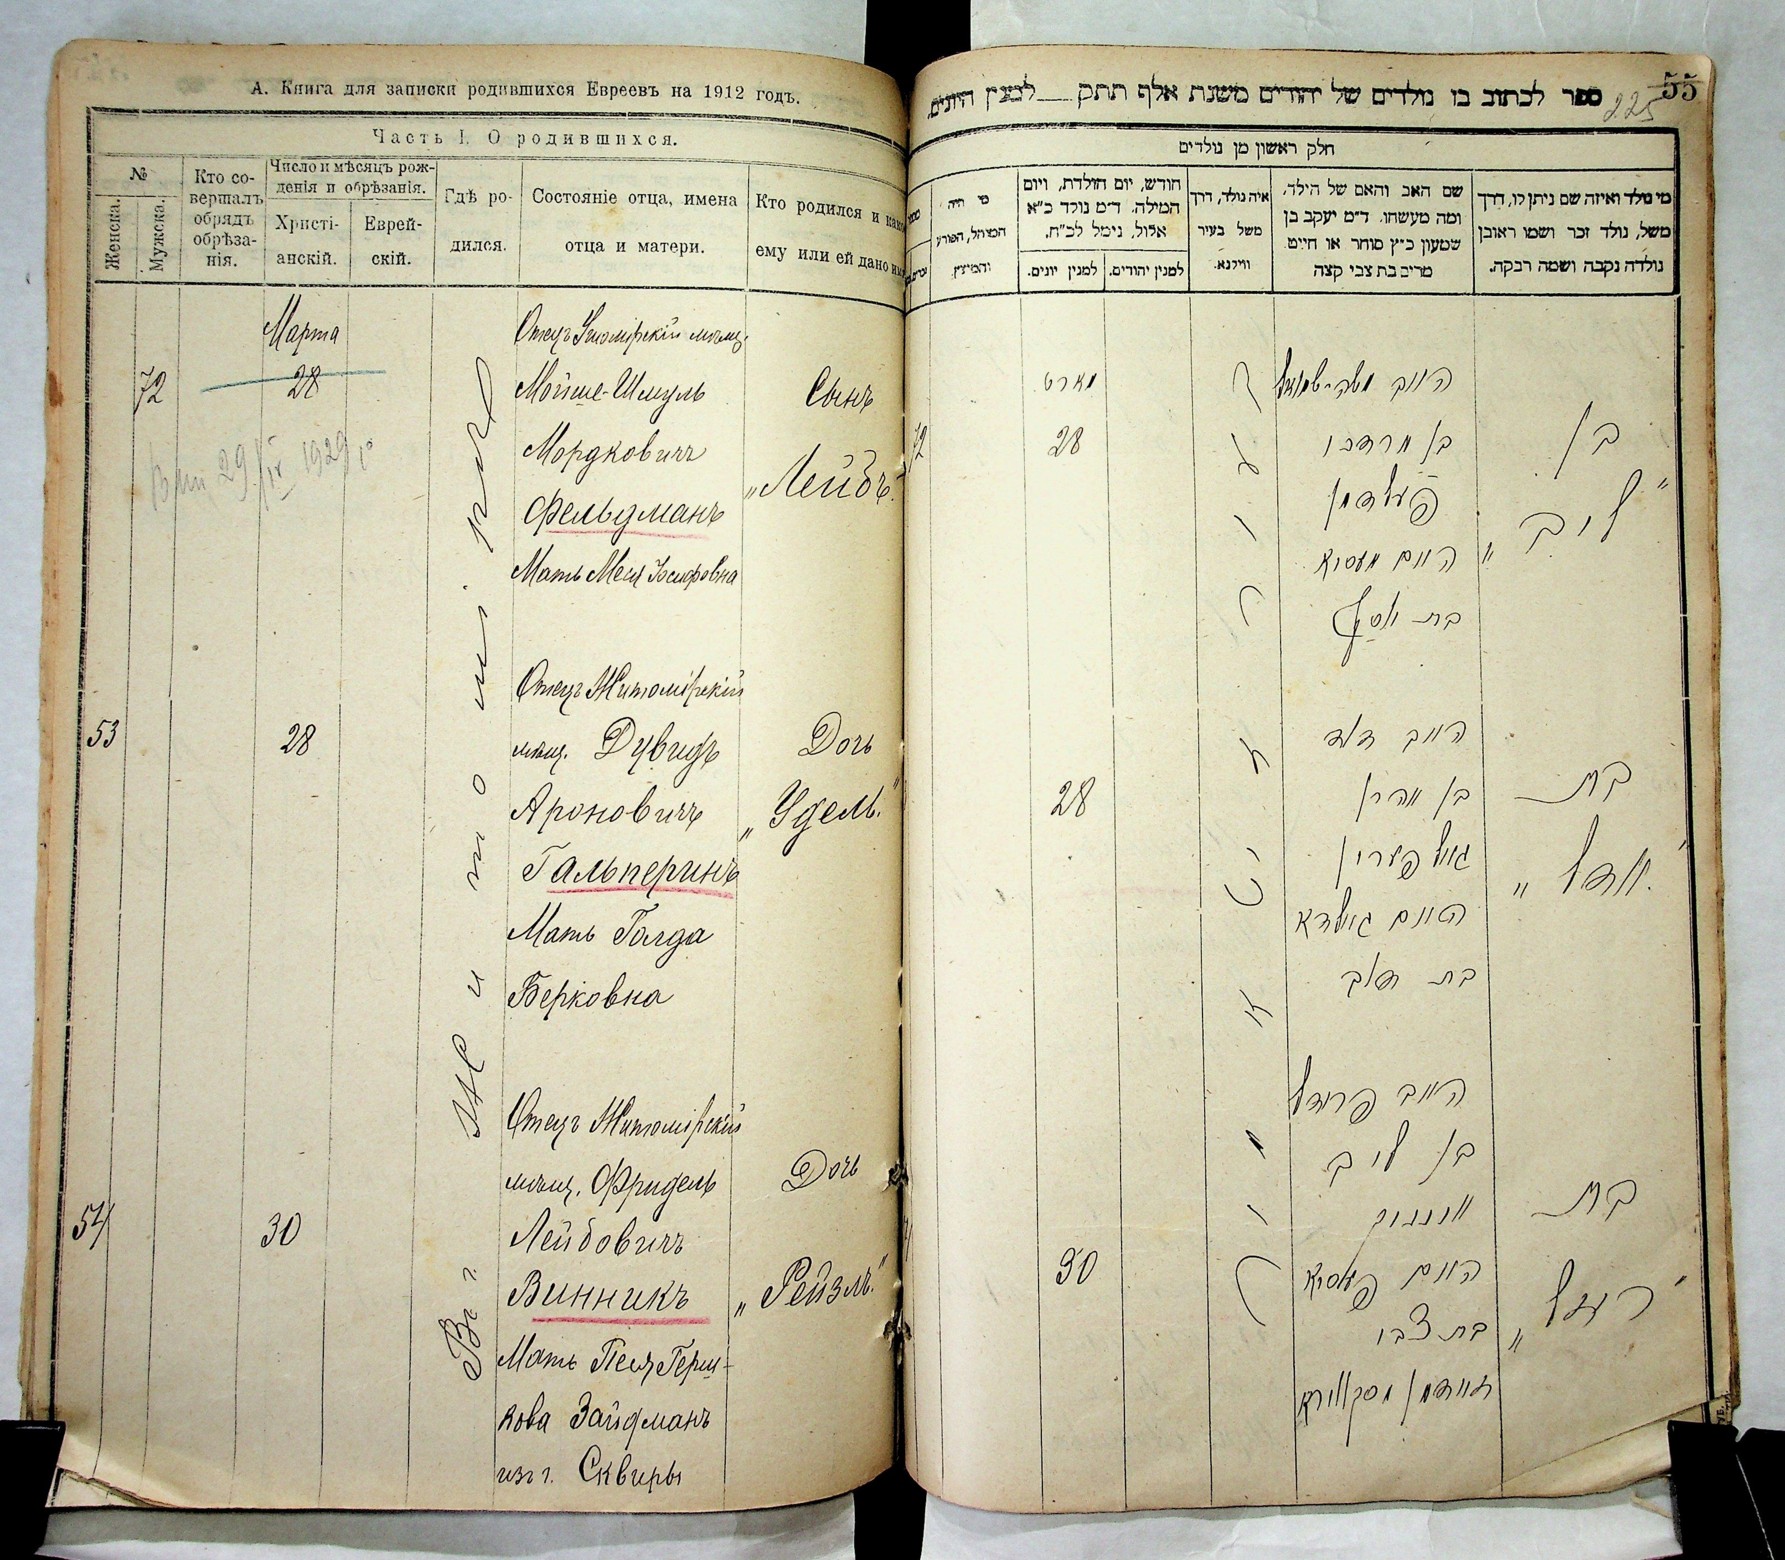 А. Книга для записки родившихся Евреевъ на 1912 годъ.
Часть I. О родившихся.
№
Женска.
Мужска.
Кто со-
вершалъ
обрядъ
обрѣза-
нія.
Число и мѣсяцъ рож-
денія и обрѣзанія.
Христі-
анскій.
Еврей-
скій.
Гдѣ ро-
дился.
Состояніе отца, имена
отца и матери.
Кто родился и како
ему или ей дано им
Марта
72
28
29/IV 1929
Въ г. Житомірѣ
Отецъ Житомірскій мѣщ.
Мойше-Шмуль
Мордковичъ
Фельдманъ
Мать Меся Іосифовна
Сынъ
„Лейбъ“
53
28
Отецъ Житомірскій
мѣщ. Дувидъ
Ароновичъ
Гальперинъ
Мать Голда
Берковна
Дочь
„Удель“
54
30
Отецъ Житомірскій
мѣщ. Фридель
Лейбовичъ
Винникъ
Мать Песя Герш-
кова Зайдманъ
изъ г. Сквиры
Дочь
„Рейзль“
ספר לכתוב בו נולדים של יהודים משנת אלף תתק__לבנין היונים.
55
225
חלק ראשון מן נולדים
מי נולד ואיזה שם ניתן לו, דרך
משל, נולד זכר ושמו ראובן
נולדה נקבה ושמה רבקה.
שם האב והאם של הילד,
ומה מעשהו. ד״מ יעקב בן
שמעון כ״ץ סוחר או חייט
מרים בת צבי קצה
איה נולד, דרך
משל בעיר
ווילנא.
חודש, יום הולדת, ויום
המילה. ד״מ נולד כ״א
אלול, נימל לכ״ח.
למנין יהודים.
למנין יונים.
מי היה
המוהל, הפורע
והמוצץ.
מארט
72
28
האב משה-שמואל
בן מרדכי
פעלדמן
האם מעסיא
בת יוסף
בן
„ליב“
28
האב דוד
בן אהרן
גאלפערין
האם גאלדא
בת דוב
בת
„אדל“
30
האב פרידל
בן ליב
וויניק
האם פעסיא
בת צבי
זיידמן מסקווירא
בת
„רעזל“